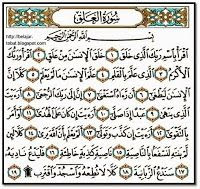 سُورَةُ الْعَلَقِ
http://belajar-
tobat.blogspot.com
بِسْمِ اللَّهِ الرَّحْمَٰنِ الرَّحِيمِ
اقْرَأْ بِاسْمِ رَبِّكَ الَّذِي خَلَقَ ١ خَلَقَ الْإِنسَانَ مِنْ عَلَقٍ ٢ اقْرَأْ وَرَبُّكَ
الْأَكْرَمُ ٣ الَّذِي عَلَّمَ بِالْقَلَمِ ٤ عَلَّمَ الْإِنسَانَ مَا لَمْ يَعْلَمْ ٥ كَلَّا إِنَّ
الْإِنسَانَ لَيَطْغَىٰ ٦ أَن رَّآهُ اسْتَغْنَىٰ ٧ إِنَّ إِلَىٰ رَبِّكَ الرُّجْعَىٰ ٨ أَرَأَيْتَ
الَّذِي يَنْهَىٰ ٩ عَبْدًا إِذَا صَلَّىٰ ١٠ أَرَأَيْتَ إِن كَانَ عَلَى الْهُدَىٰ ١١ أَوْ أَمَرَ
بِالتَّقْوَىٰ ١٢ أَرَأَيْتَ إِن كَذَّبَ وَتَوَلَّىٰ ١٣ أَلَمْ يَعْلَم بِأَنَّ اللَّهَ يَرَىٰ ١٤ كَلَّا
لَئِن لَّمْ يَنتَهِ لَنَسْفَعًا بِالنَّاصِيَةِ ١٥ نَاصِيَةٍ كَاذِبَةٍ خَاطِئَةٍ ١٦ فَلْيَدْعُ نَادِيَهُ
١٧ سَنَدْعُ الزَّبَانِيَةَ ١٨ كَلَّا لَا تُطِعْهُ وَاسْجُدْ وَاقْتَرِب ١٩